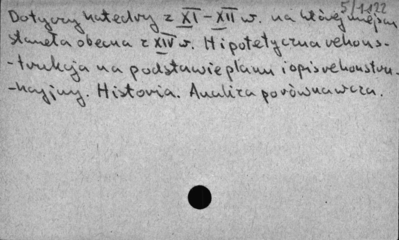 5/1122
Dotyczy katedry z XI-XII w. na której miejscu
stanęła obecna z XIV w. Hipotetyczna rekons-
-trukcja na podstawie planu i opis rekonstru-
-kcyjny. Historia. Analiza porównawcza.